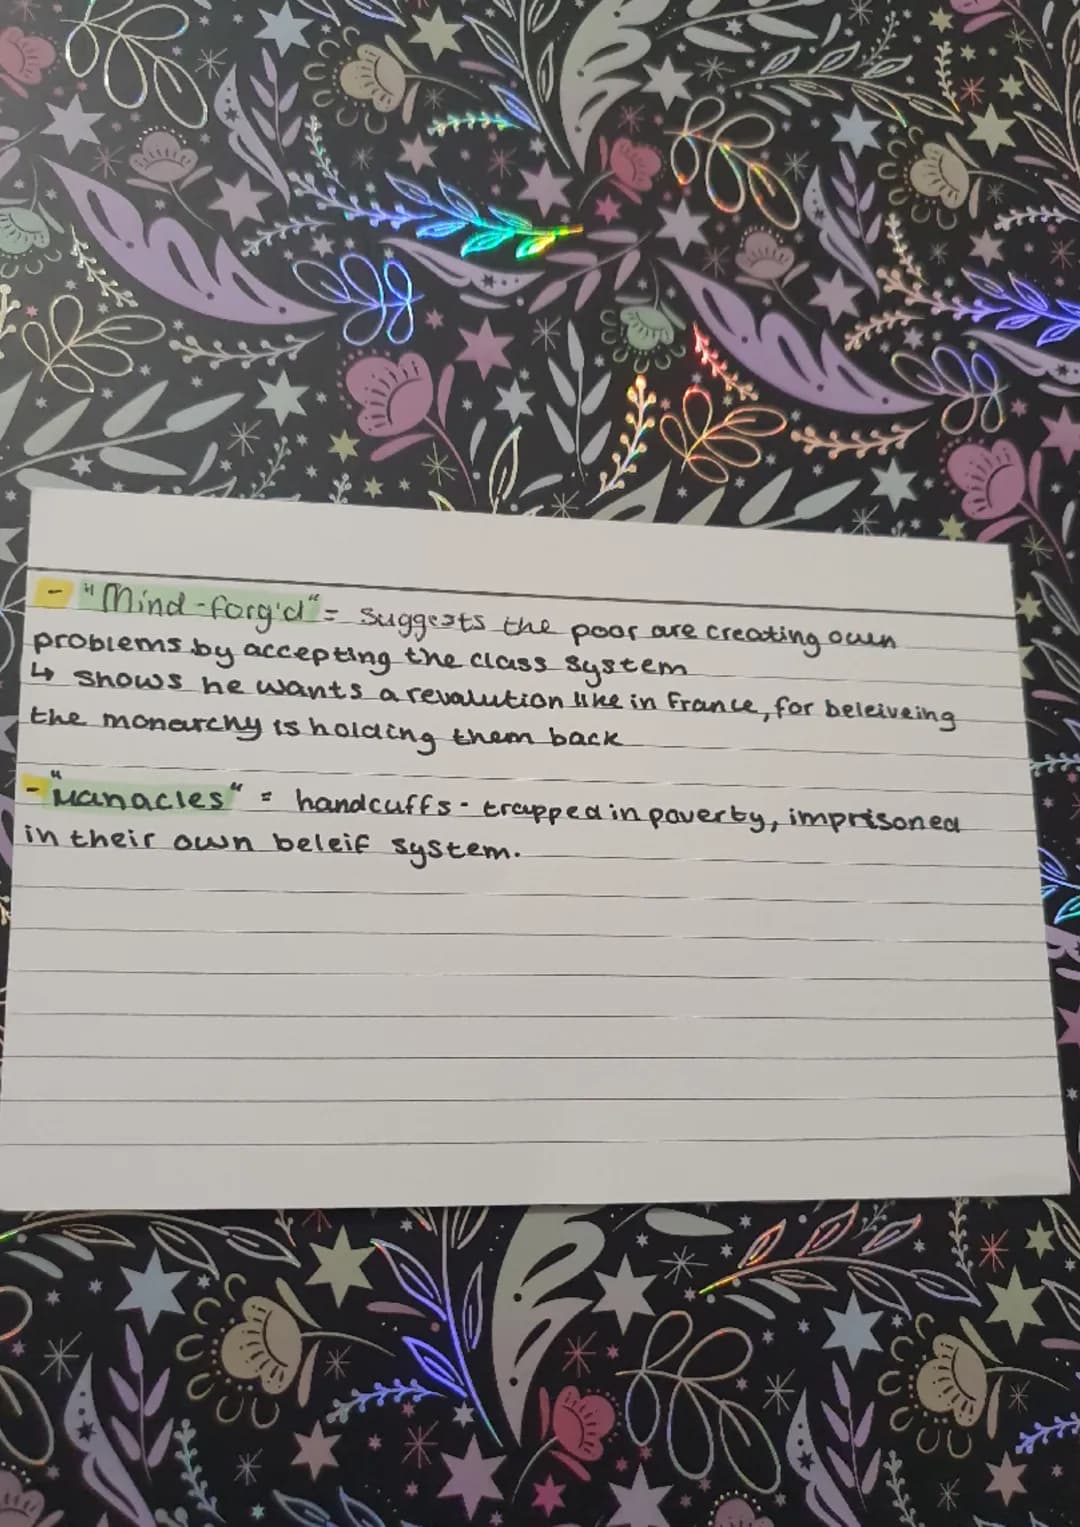 - "Mind-forg'd" = suggests the poor are creating own
problems by accepting the class system
↳ shows he wants a revalution like in France, for beleiveing
the monarchy is holding them back
- "Manacles" = handcuffs - trapped in poverty, imprisoned
in their own beleif system.